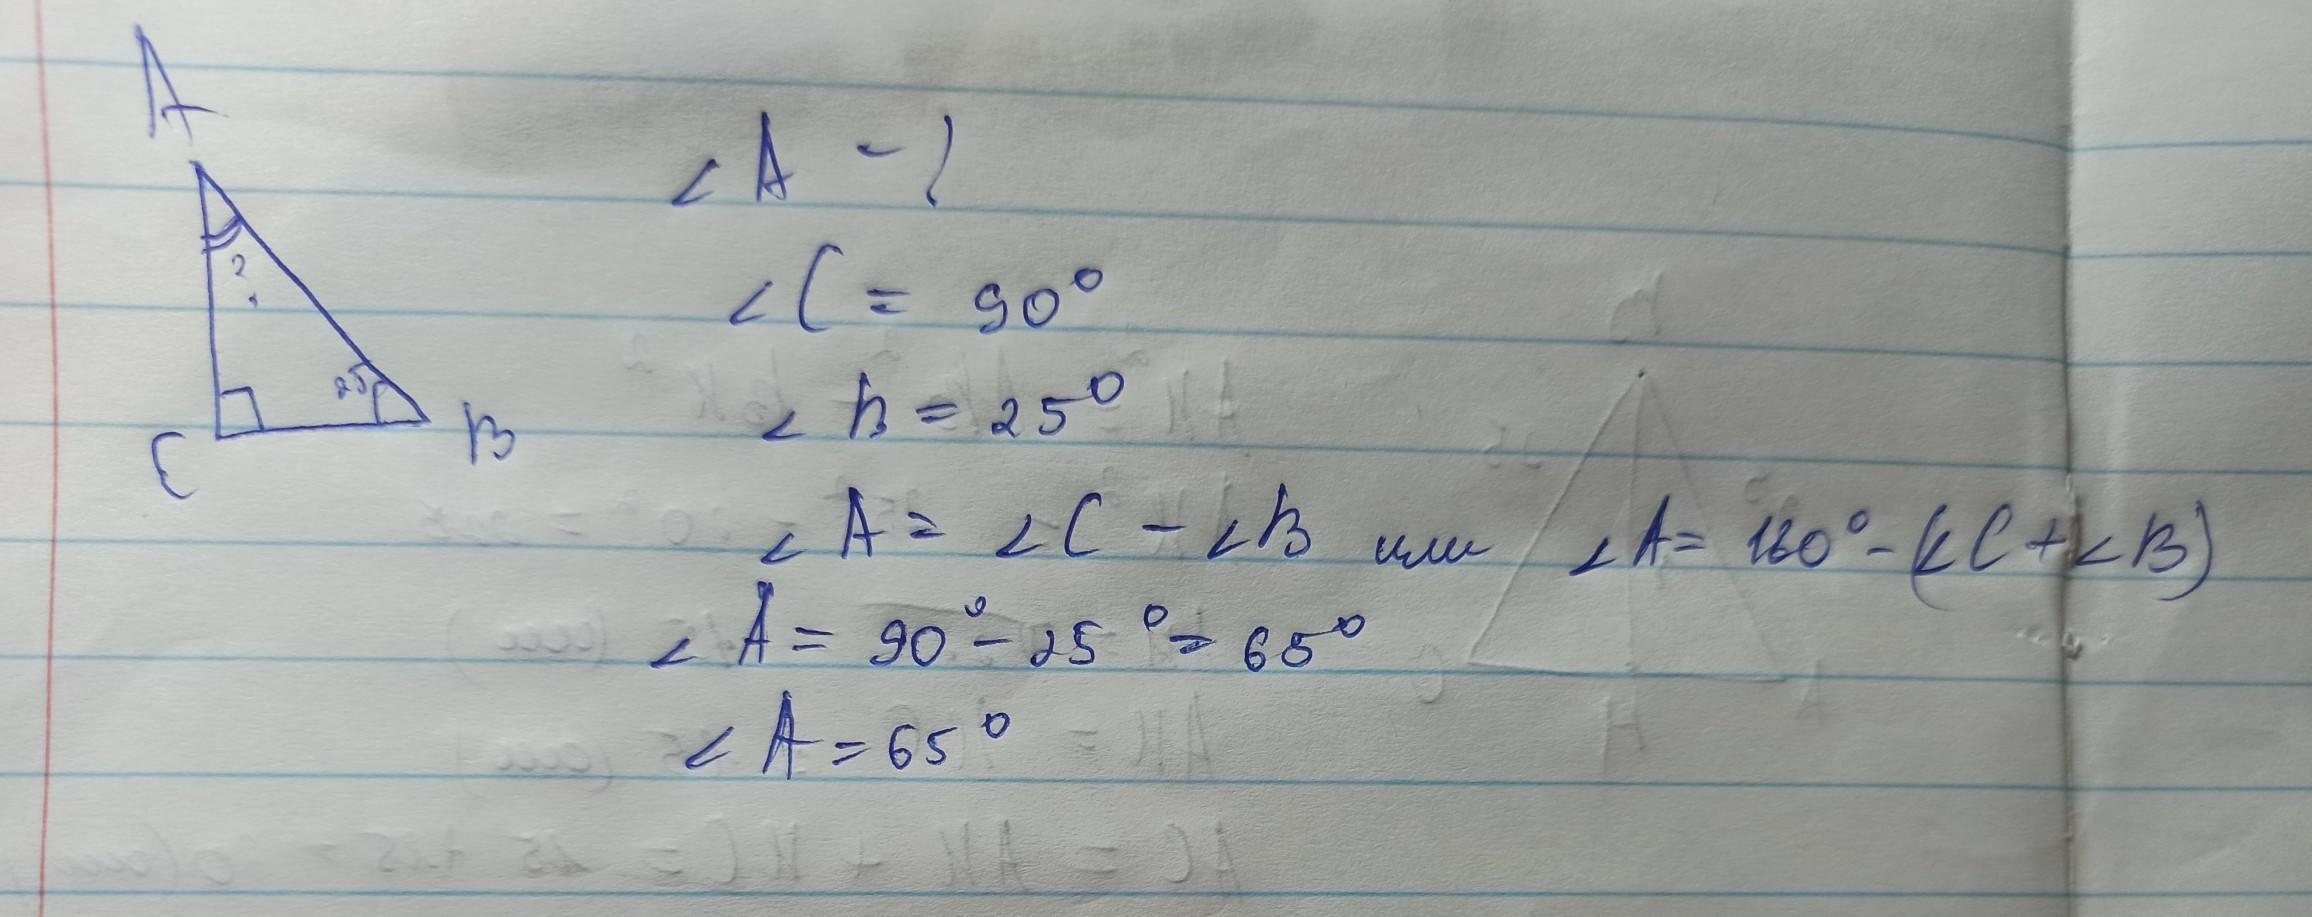 A
?
25
C
B
∠A - ?
∠C = 90°
∠B = 25°
∠A = ∠C - ∠B или ∠A = 180° - (∠C + ∠B)
∠A = 90° - 25° = 65°
∠A = 65°